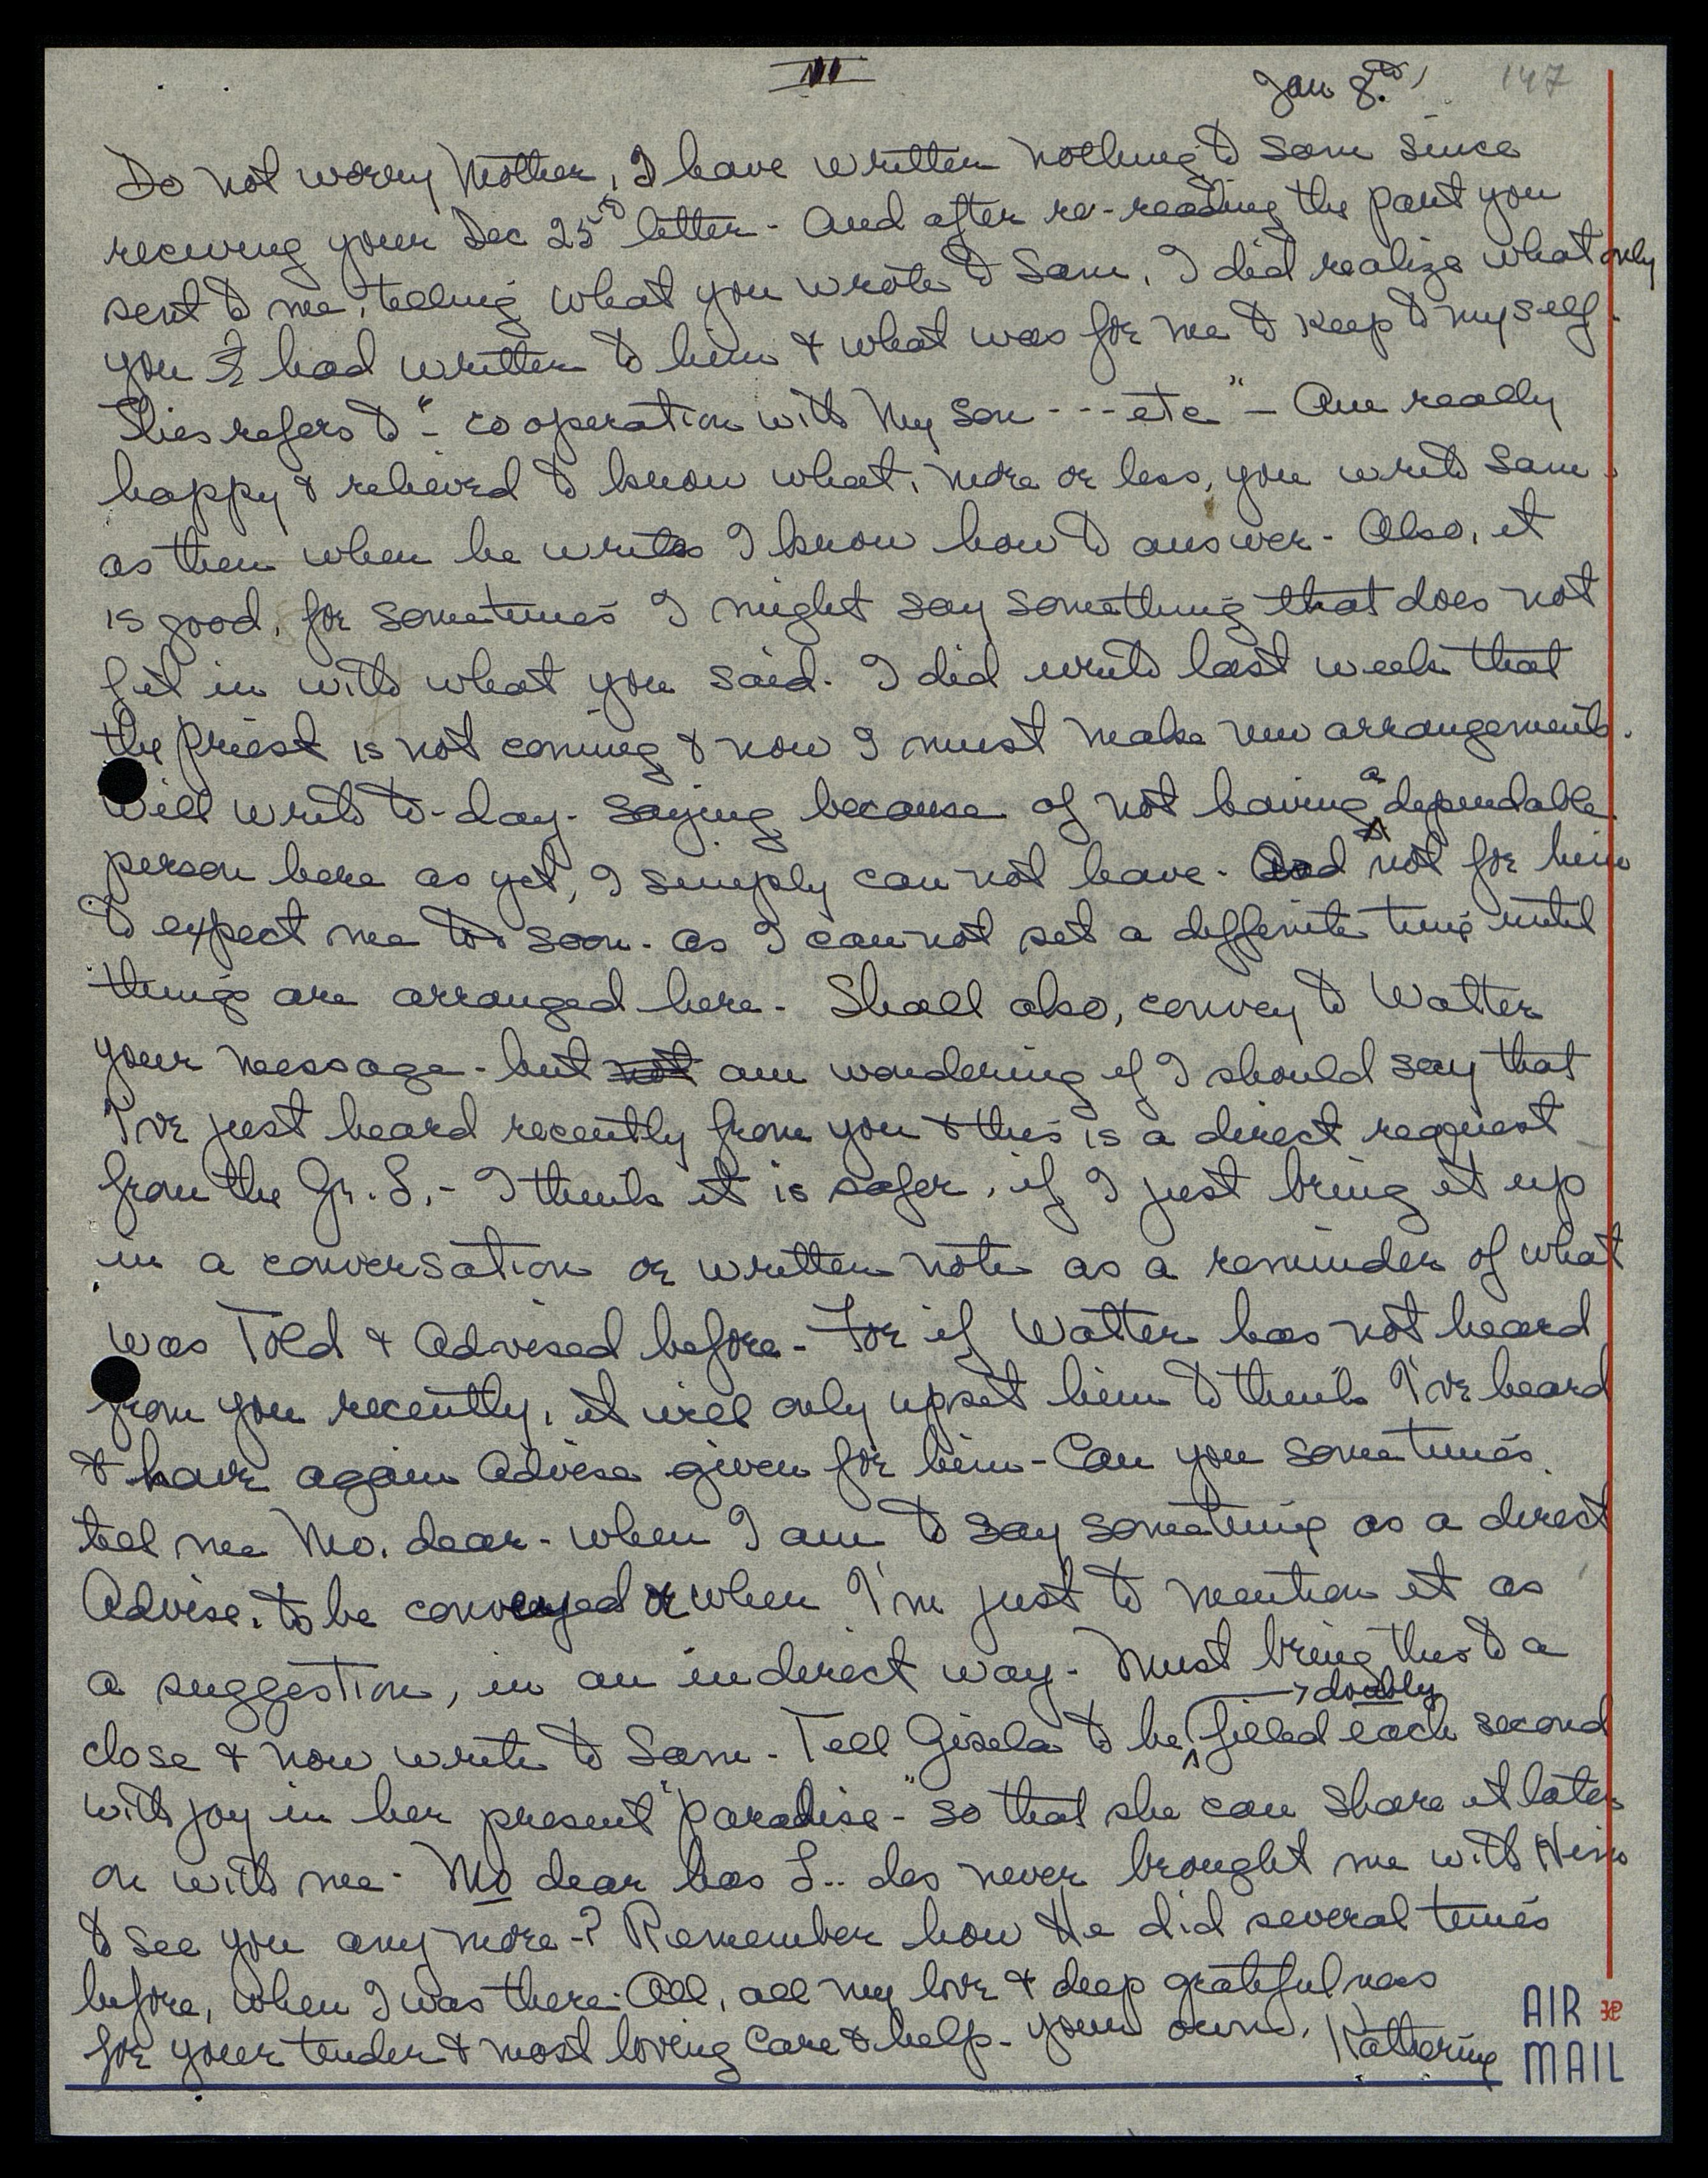 III
Jan 8.th 147
Do not worry Mother, I have written nothing to Sam since
receiving your Dec 25th letter - And after re-reading the part you
sent to me, telling what you wrote to Sam, I did realize what only
you had written to him & what was for me to keep to myself.
This refers to "- cooperation with My Son --- etc" - Am really
happy & relieved to know what, more or less, you write Sam.
as then when he writes I know how to answer - Also, it
is good, for sometimes I might say something that does not
fit in with what you said. I did write last week that
the priest is not coming & now I must make new arrangements.
Will write to-day - saying because of not having a dependable
person here as yet, I simply can not leave. And not for him
to expect me too soon - as I can not set a deffinite time until
things are arranged here - Shall also, convey to Walter
your message - but not am wondering if I should say that
I've just heard recently from you & this is a direct request
from the Gr. S. - I think it is safer, if I just bring it up
in a conversation or written note as a reminder of what
was Told & Advised before - For if Walter has not heard
from you recently, it will only upset him to think I've heard
& have again Advise given for him - Can you sometimes
tell me Mo. dear - when I am to say something as a direct
Advise, to be conveyed or when I'm just to mention it as
a suggestion, in an inderect way - Must bring this to a
close & now write to Sam - Tell Gisela to be doubly filled each second
with joy in her present "paradise -" so that she can share it later
on with me - Mo dear has L.. des never brought me with Him
to see you any more -? Remember how He did several times
before, when I was there. All, all my love & deep gratefulness
for your tender & most loving Care & help - your own, Katherine
AIR
MAIL